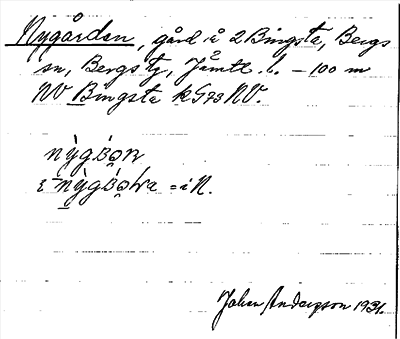 Nygården, gård i 2 Bingsta, Bergs
sn, Bergs tg, Jämtl. l. – 100 m
NV Bingsta k G 78 NV.
i = i N.
Johan Andersson 1931.